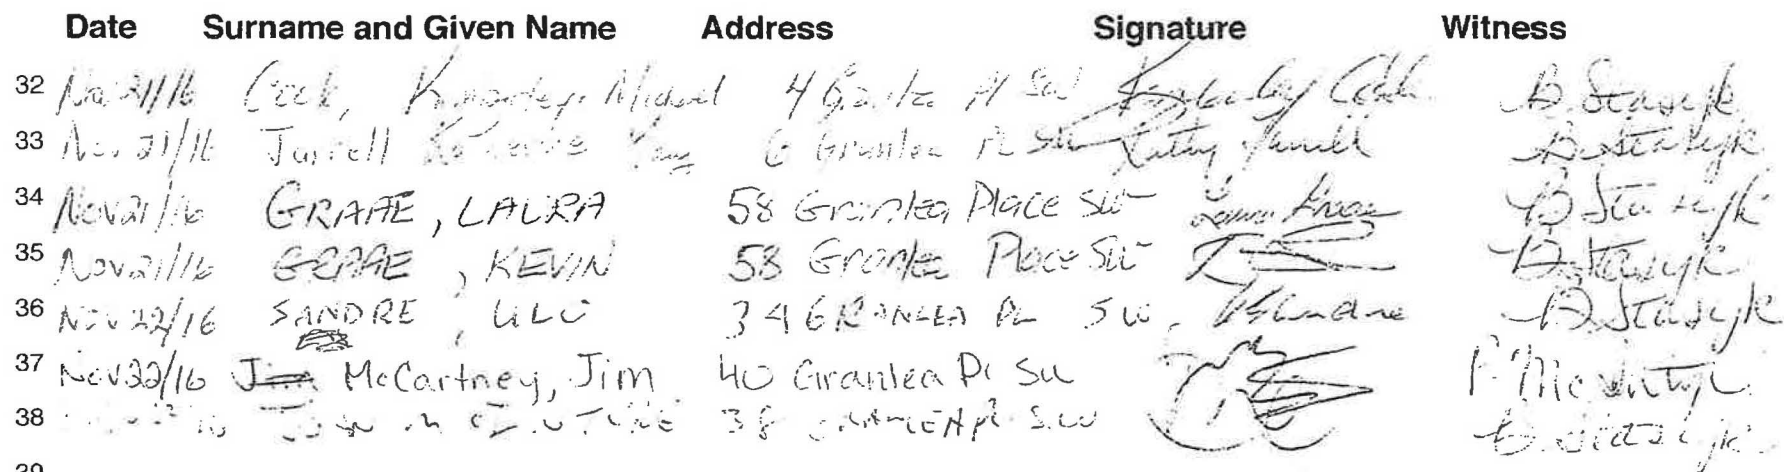 Date Surname and Given Name Address Signature Witness
32 Nov 21/16 Cook, Kimberley Michael 4 Granlea Pl SW Kimberley Cook B. Stasyk
33 Nov 21/16 Jarrell Katherine 6 Granlea Pl SW Kathy Jarrell B. Stasyk
34 Nov 21/16 GRAAE, LAURA 58 Granlea Place SW Laura Graae B. Stasyk
35 Nov 21/16 GRAAE, KEVIN 58 Granlea Place SW B. Stasyk
36 Nov 22/16 SANDRE, ULO 34 GRANLEA PL SW, B. Stasyk
37 Nov 22/16 Jim McCartney, Jim 40 Granlea Pl SW P. McIntyre
38 38 GRANLEA Pl S.W B. Stasyk
39